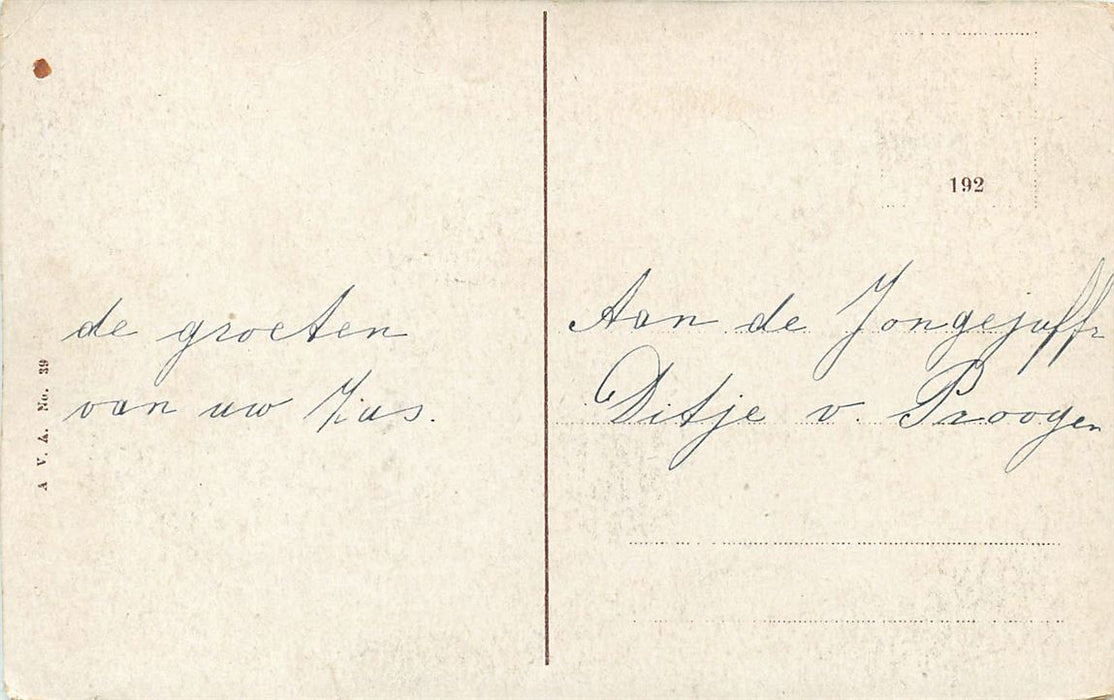 A V. A. No. 39
de groeten
van uw Zus.
192
Aan de Jongejuffr
Ditje v. Prooyen